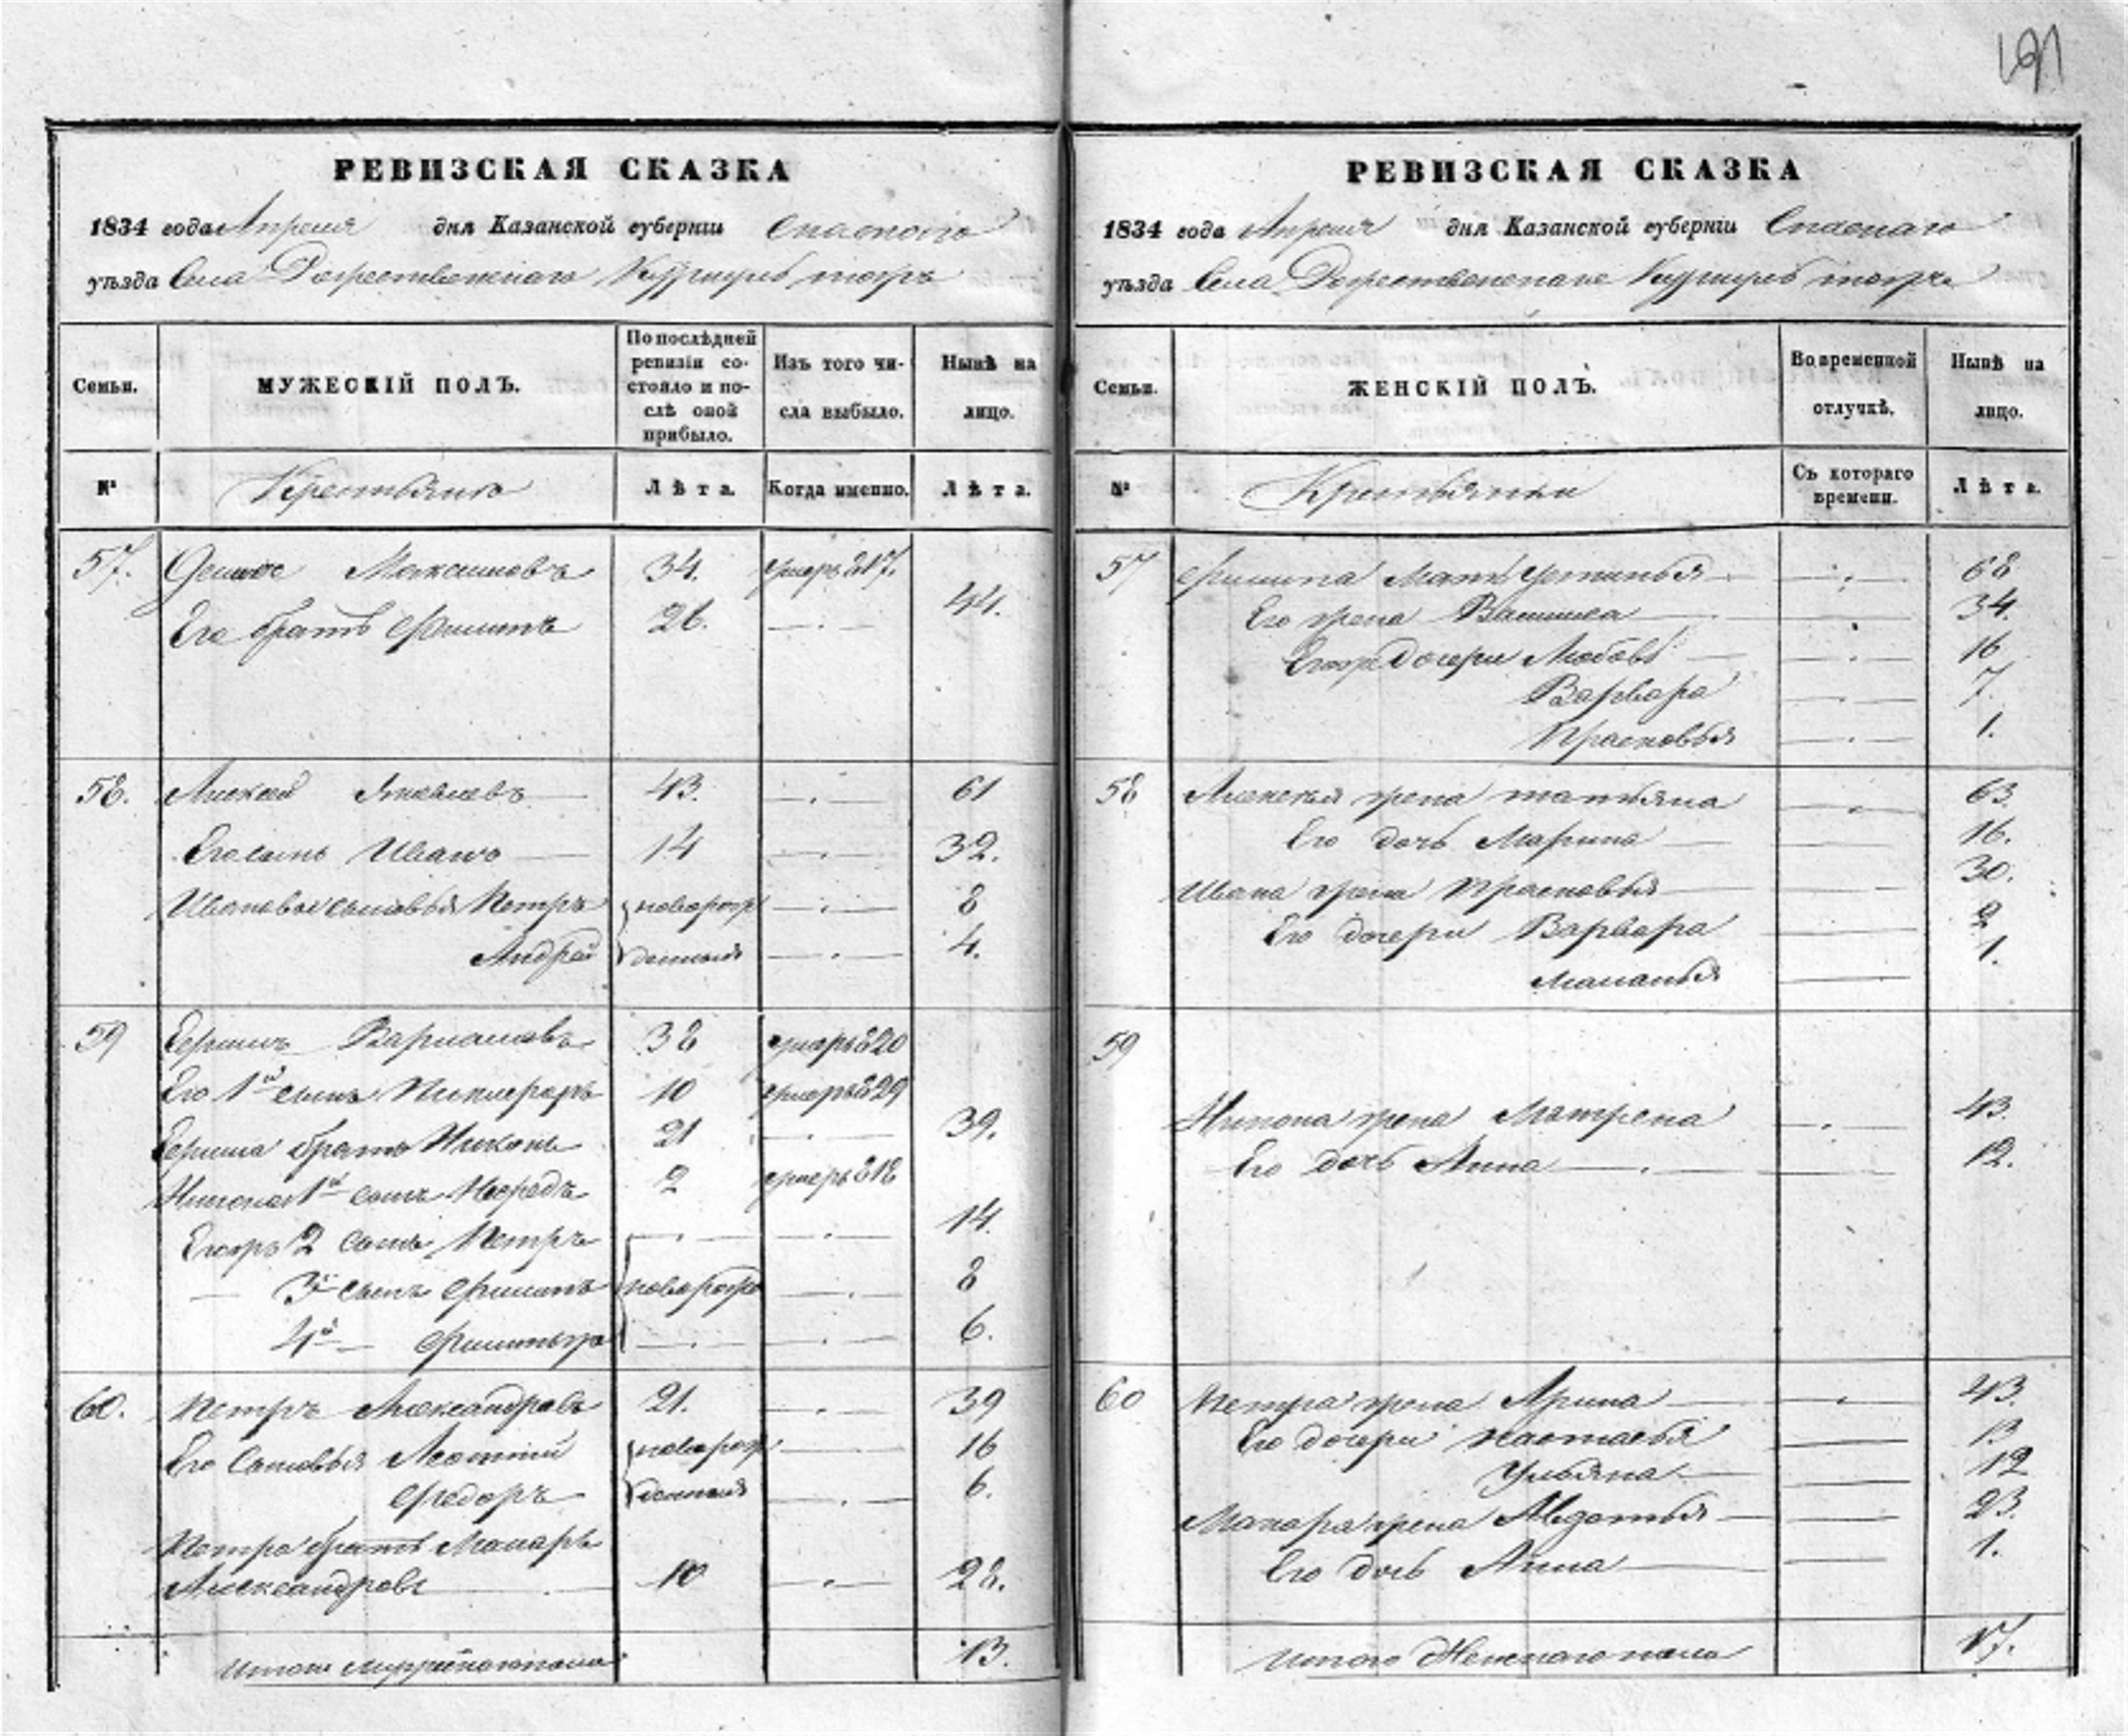 191
РЕВИЗСКАЯ СКАЗКА
1834 года Апреля дня Казанской губерніи Спаскаго
уѣзда Села Рождественскаго тожъ
Семьи. МУЖЕСКІЙ ПОЛЪ. По послѣдней ревизіи состояло и послѣ оной прибыло. Изъ того числа выбыло. Нынѣ на лицо.
№ Крестьяне Лѣта. Когда именно. Лѣта.
57. Максимовъ 34. умеръ 817.
Его братъ Филипъ 26. 44.
58. Алексей Яковлевъ 43. 61
Его сынъ Иванъ 14 32.
Ивановы сыновья Петръ новорож 8
Андрей денныя 4.
59 Варламовъ 38 умеръ 820
Его 1й сынъ Никифоръ 10 умеръ 829
братъ Никонъ 21 39.
Никона 1й сынъ 2 умеръ 818
Егожъ 2 сынъ Петръ 14.
3й сынъ Филипъ новорож 8
4й 6.
60. Петръ Александровъ 21. 39
Его сыновья Леонтий новорож 16
Федоръ денныя 6.
Петра братъ Макаръ
Александровъ 10 28.
Итого мужескаго пола 13.
РЕВИЗСКАЯ СКАЗКА
1834 года Апреля дня Казанской губерніи Спаскаго
уѣзда Села тожъ
Семьи. ЖЕНСКІЙ ПОЛЪ. Во временной отлучкѣ. Нынѣ на лицо.
№ Крестьянки Съ котораго времени. Лѣта.
57 Филипа мать Устинья 68
Его жена Василиса 34.
Егожъ дочери Любовь 16
Варвара 7.
Прасковья 1.
58 Алексея жена татьяна 63.
Его дочь Марина 16.
Ивана жена Прасковья 30.
Его дочери Варвара 2
Маланья 1.
59
Никона жена Матрена 43.
Его дочь Анна 12.
60 Петра жена Арина 43.
Его дочери Настасья 13
Ульяна 12
Макара жена Авдотья 23.
Его дочь Анна 1.
Итого Женскаго пола 17.